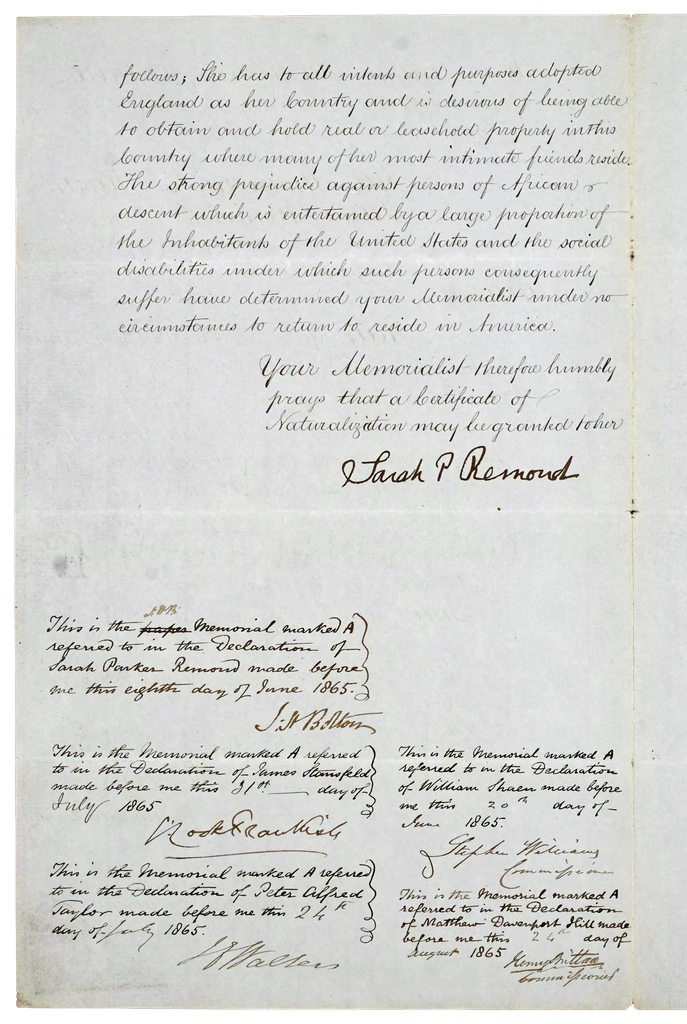 follows; She has to all intents and purposes adopted
England as her Country and is desirous of being able
to obtain and hold real or leasehold property in this
Country where many of her most intimate friends reside.
The strong prejudice against persons of African
descent which is entertained by a large proportion of
the Inhabitants of the United States and the social
disabilities under which such persons consequently
suffer have determined your Memorialist under no
circumstances to return to reside in America.
Your Memorialist therefore humbly
prays that a Certificate of
Naturalization may be granted to her
Sarah P Remond
This is the paper Memorial marked A
referred to in the Declaration of
Sarah Parker Remond made before
me this eighth day of June 1865.
This is the Memorial marked A referred
to in the Declaration of James Stansfeld
made before me this 31st day of
July 1865
This is the Memorial marked A referred
to in the Declaration of Peter Alfred
Taylor made before me this 24th
day of July 1865.
This is the Memorial marked A
referred to in the Declaration
of William Shaen made before
me this 20th day of
June 1865.
Stephen Williams
Commissioner
This is the Memorial marked A
referred to in the Declaration
of Matthew Davenport Hill made
before me this 24th day of
August 1865
Henry Brittan
Commissioner